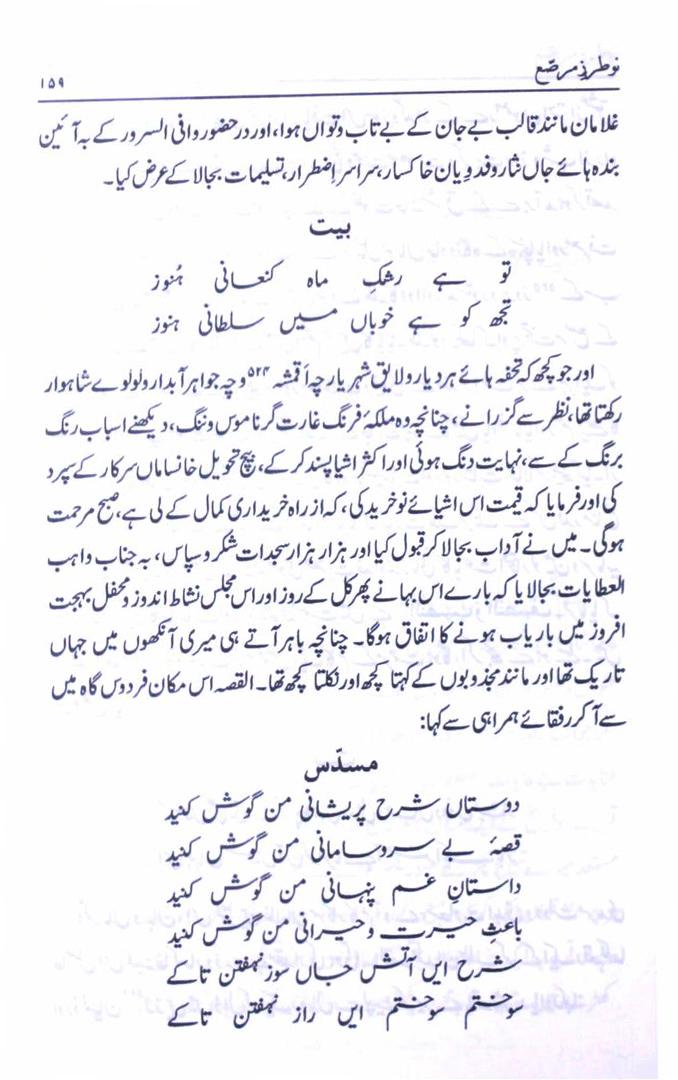 نو طرزِ مرصّع
۱۵۹
غلامان مانند قالب بے جان کے بے تاب و تواں ہوا، اور در حضور وافی السرور کے بہ آئین
بندہ ہائے جاں نثار و فدویان خاکسار، سراسر اِضطرار، تسلیمات بجا لا کے عرض کیا۔
بیت
تو ہے رشکِ ماہ کنعانی ہُنوز
تجھ کو ہے خوباں میں سلطانی ہنوز
اور جو کچھ کہ تحفہ ہائے ہر دیار و لایق شہریار چہ اَقمشہ ۵۲۴ و چہ جواہر آبدار و لولوے شاہوار
رکھتا تھا، نظر سے گزرانے، چنانچہ وہ ملکۂ فرنگ غارت گر ناموس و ننگ، دیکھنے اسباب رنگ
برنگ کے سے، نہایت دنگ ہوئی اور اکثر اشیا پسند کر کے، بیچ تحویل خانساماں سرکار کے سپرد
کی اور فرمایا کہ قیمت اس اشیائے نو خرید کی، کہ از راہ خریداری کمال کے لی ہے، صبح مرحمت
ہوگی۔ میں نے آداب بجا لا کر قبول کیا اور ہزار ہزار سجدات شکر و سپاس، بہ جناب واہب
العطایات بجا لایا کہ بارے اس بہانے پھر کل کے روز اور اس مجلس نشاط اندوز و محفل بہجت
افروز میں باریاب ہونے کا اتفاق ہوگا۔ چنانچہ باہر آتے ہی میری آنکھوں میں جہاں
تاریک تھا اور مانند مجذوبوں کے کہتا کچھ اور نکلتا کچھ تھا۔ القصہ اس مکان فردوس گاہ میں
سے آ کر رفقائے ہمراہی سے کہا:
مسدّس
دوستاں شرح پریشانی من گوش کنید
قصۂ بے سروسامانی من گوش کنید
داستانِ غم پنہانی من گوش کنید
باعث حیرت و حیرانی من گوش کنید
شرح ایں آتش جاں سوز نہفتن تاکے
سوختم سوختم ایں راز نہفتن تاکے